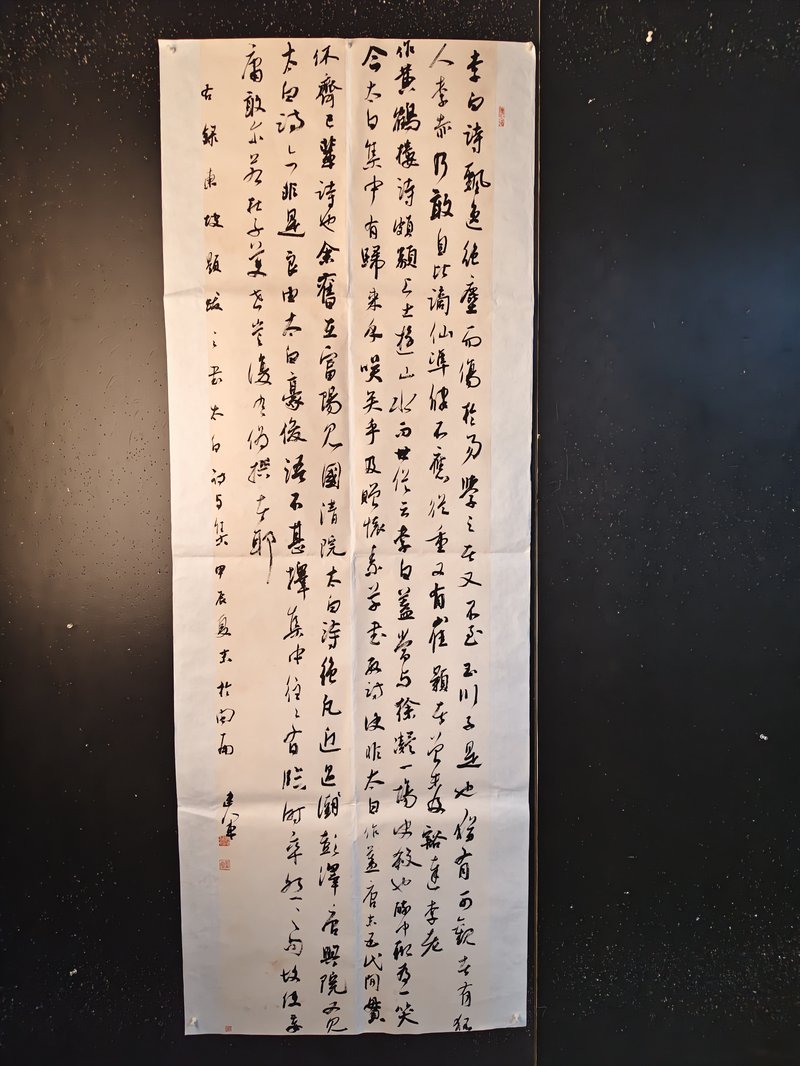 李白詩飄逸絕塵而傷於易學之者又不至玉川子是也猶有可觀者有狂
人李赤乃敢自比謫仙準律不應從重又有崔顥者曾未及豁達李老
作黃鶴樓詩頗類上士遊山水而世俗云李白蓋當与徐凝一場決殺也醉中聊為一笑
今太白集中有歸來乎笑矣乎及贈懷素草書數詩決非太白作蓋唐末五代間貫
休齊己輩詩也余舊在富陽見國清院太白詩絕凡近過彭澤唐興院又見
太白詩亦非是良由太白豪俊語不甚擇集中往往有臨時率然之句故使妄
庸敢尔若杜子美世豈復有偽撰者耶
右錄東坡題跋之書太白詩与集甲辰夏末於